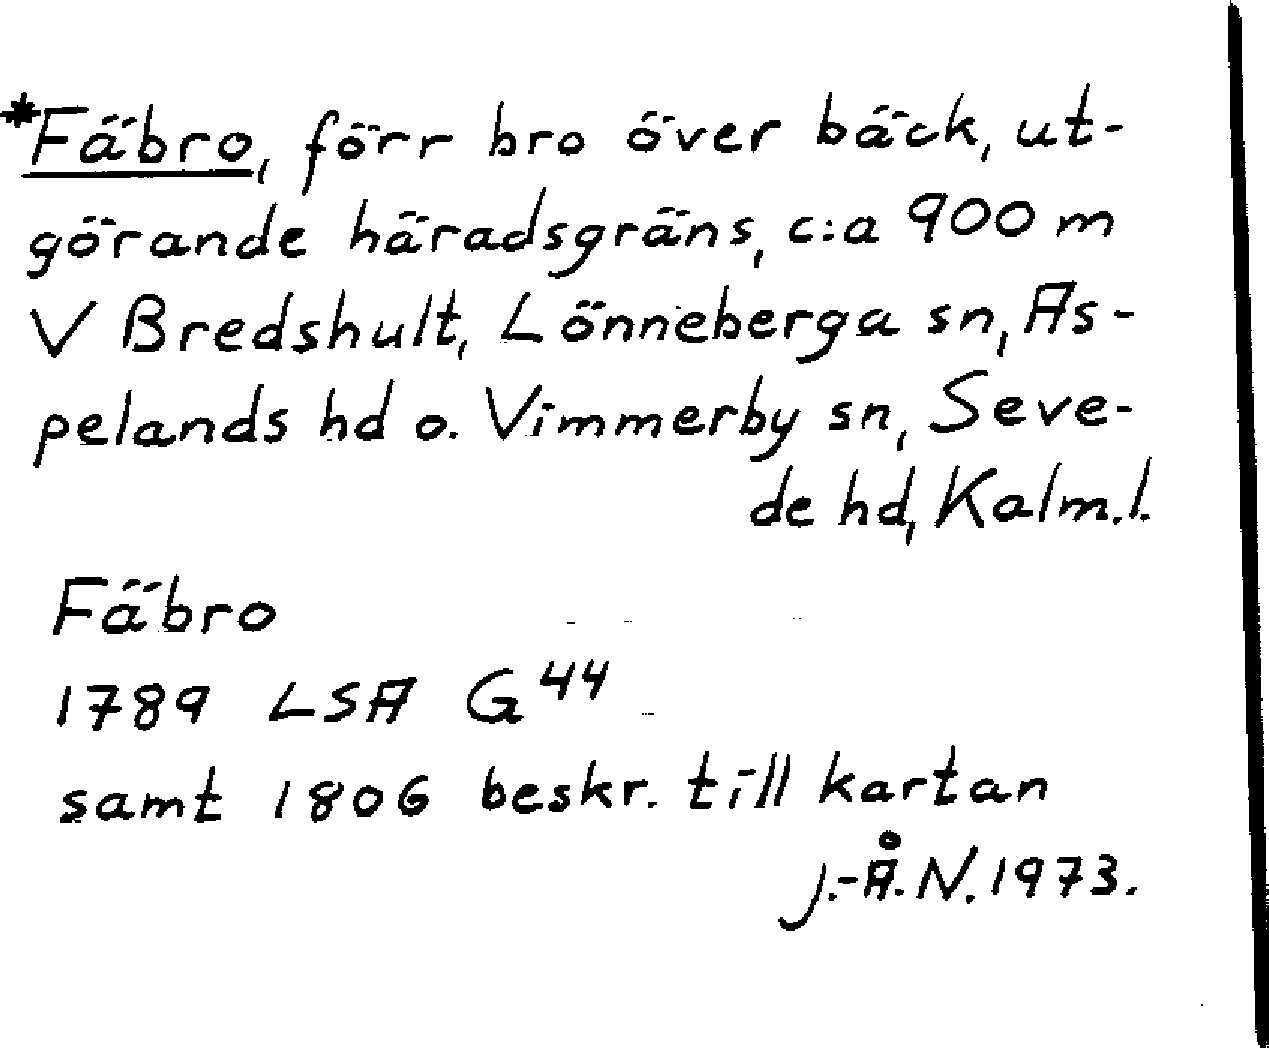 *Fäbro, förr bro över bäck, ut-
görande häradsgräns, c:a 900 m
V Bredshult, Lönneberga sn, As-
pelands hd o. Vimmerby sn, Seve-
de hd, Kalm.l.
Fäbro
1789 LSA G44
samt 1806 beskr. till kartan
J.-Å.N. 1973.